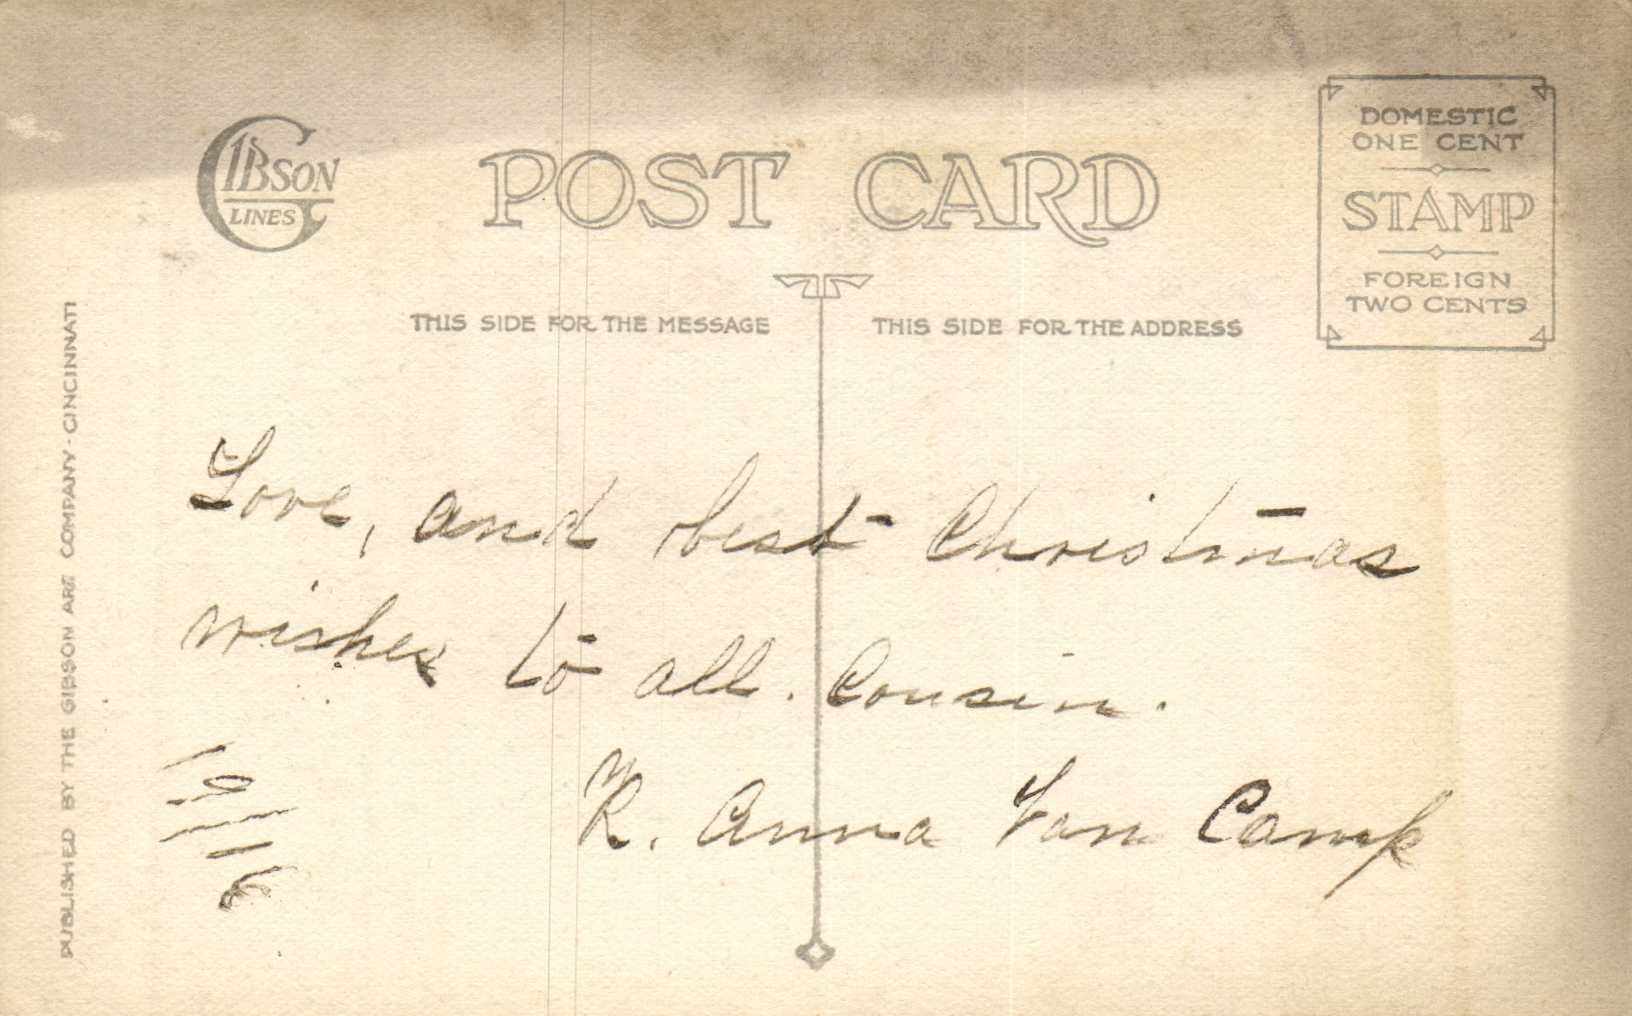 GIBSON
LINES
POST CARD
DOMESTIC
ONE CENT
STAMP
FOREIGN
TWO CENTS
THIS SIDE FOR THE MESSAGE
THIS SIDE FOR THE ADDRESS
PUBLISHED BY THE GIBSON ART COMPANY - CINCINNATI
Love, and best Christmas
wishes to all. Cousin.
R. Anna Van Camp
1916